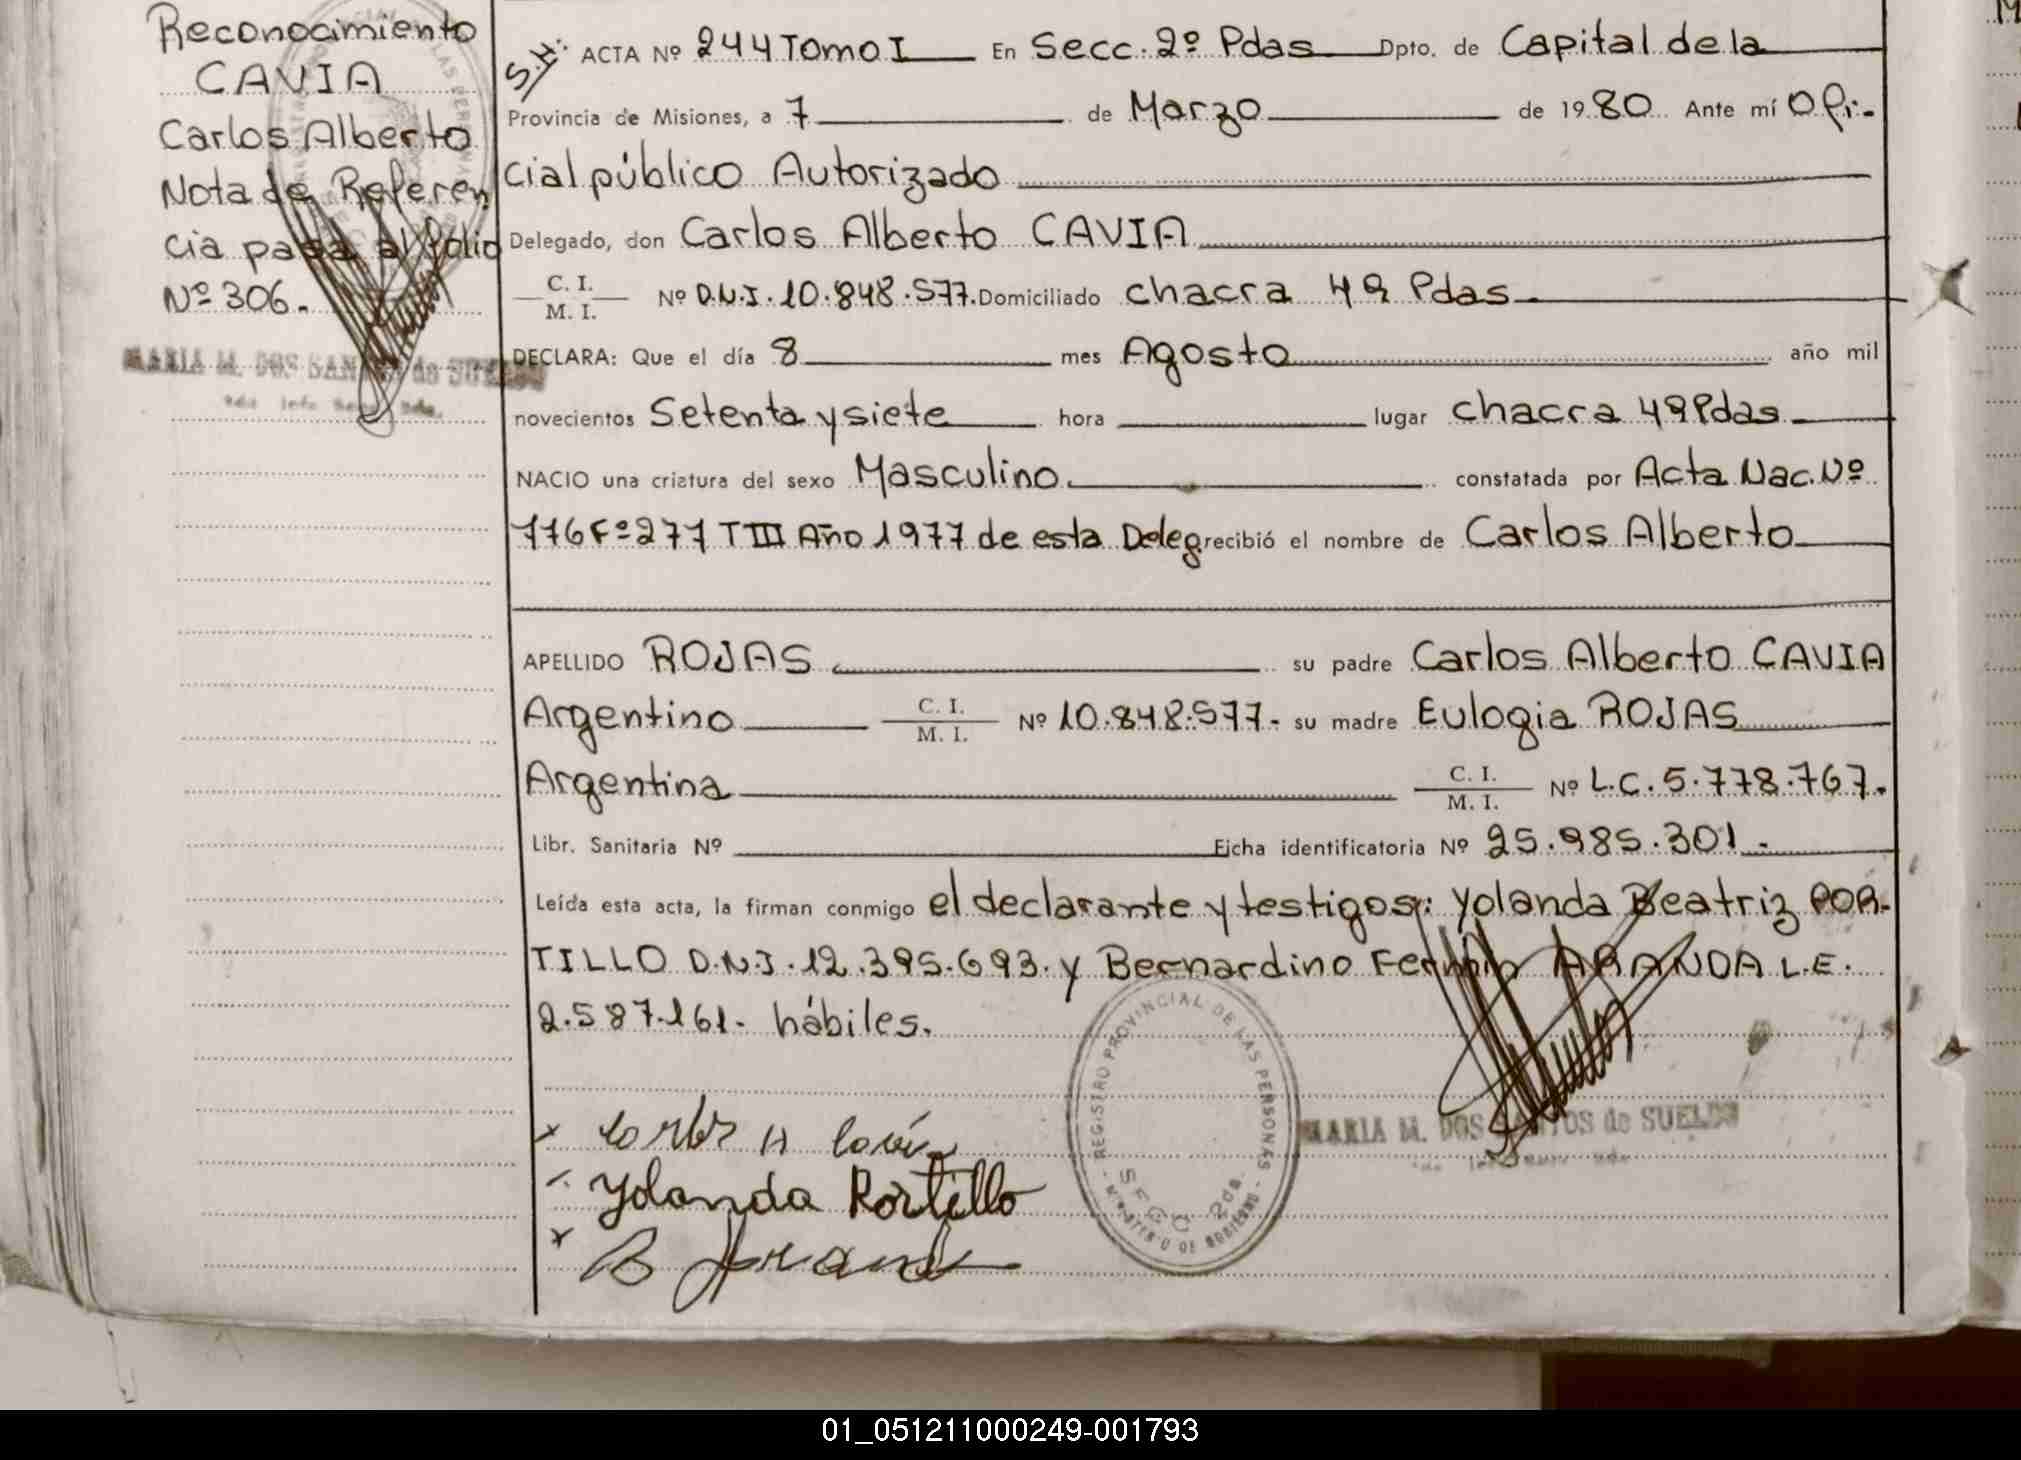 Reconocimiento
CAVIA
Carlos Alberto
Nota de Referen
cia pasa al folio
Nº 306.
MARIA M. DOS SANTOS de SUELDO
S.H: ACTA Nº 244 Tomo I En Secc. 2º Pdas Dpto. de Capital de la
Provincia de Misiones, a 7 de Marzo de 1980 Ante mí Ofi-
cial público Autorizado
Delegado, don Carlos Alberto CAVIA
C. I.
M. I.
Nº D.N.I. 10.848.577. Domiciliado chacra 49 Pdas
DECLARA: Que el día 8 mes Agosto año mil
novecientos Setenta y siete hora lugar chacra 49 Pdas
NACIO una criatura del sexo Masculino constatada por Acta Nac. Nº
776 Fº 277 T III Año 1977 de esta Deleg recibió el nombre de Carlos Alberto
APELLIDO ROJAS su padre Carlos Alberto CAVIA
Argentino C. I. M. I. Nº 10.848.577- su madre Eulogia ROJAS
Argentina C. I. M. I. Nº L.C. 5.778.767.
Libr. Sanitaria Nº Ficha identificatoria Nº 25.985.301.-
Leída esta acta, la firman conmigo el declarante y testigos: Yolanda Beatriz POR-
TILLO D.N.I. 12.395.693. y Bernardino Fermin ARANDA L.E.
2.587.161- hábiles.
REGISTRO PROVINCIAL DE LAS PERSONAS
SECC 2da.
MINISTERIO DE GOBIERNO
MARIA M. DOS SANTOS de SUELDO
Carlos A Cavia
Yolanda Portillo
B Aranda
01_051211000249-001793